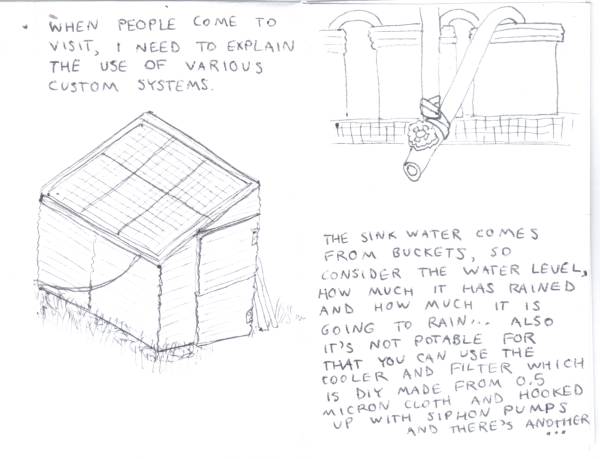 WHEN PEOPLE COME TO
VISIT, I NEED TO EXPLAIN
THE USE OF VARIOUS
CUSTOM SYSTEMS.
THE SINK WATER COMES
FROM BUCKETS, SO
CONSIDER THE WATER LEVEL,
HOW MUCH IT HAS RAINED
AND HOW MUCH IT IS
GOING TO RAIN... ALSO
IT'S NOT POTABLE FOR
THAT YOU CAN USE THE
COOLER AND FILTER WHICH
IS DIY MADE FROM 0.5
MICRON CLOTH AND HOOKED
UP WITH SIPHON PUMPS
AND THERE'S ANOTHER
...